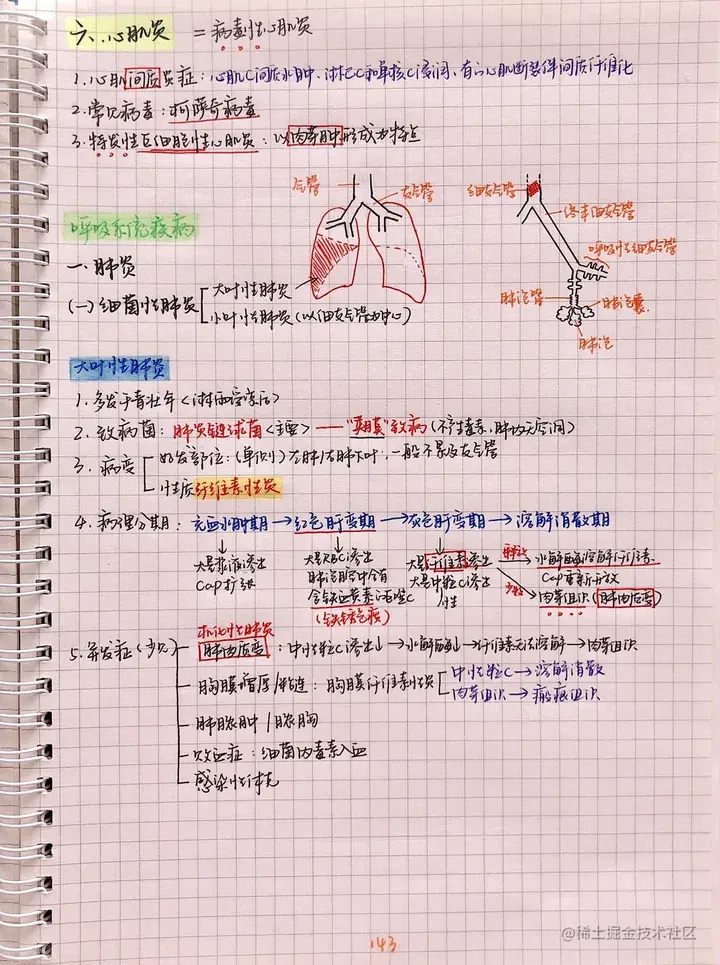 六、心肌炎 = 病毒性心肌炎
1. 心肌间质炎症：心肌C间质水肿、淋巴C和单核C浸润，有心肌断裂伴间质纤维化
2. 常见病毒：柯萨奇病毒
3. 特发性巨细胞性心肌炎：以肉芽肿形成为特点
气管
支气管
细支气管
终末细支气管
呼吸性细支气管
肺泡管
肺泡囊
肺泡
呼吸系统疾病
一. 肺炎
(一) 细菌性肺炎
大叶性肺炎
小叶性肺炎(以细支气管为中心)
大叶性肺炎
1. 多发于青壮年<淋雨受凉后>
2. 致病菌：肺炎链球菌<主要> ——"荚膜"致病(不产生毒素，肺内无空洞)
3. 病变
好发部位：(单侧)左肺/右肺下叶，一般不累及支气管
性质 纤维素性炎
4. 病理分期：充血水肿期→红色肝变期→灰色肝变期→溶解消散期
大量浆液渗出
Cap扩张
大量RBC渗出
肺泡腔中含有
含铁血黄素
(铁锈色痰)
大量纤维素渗出
大量中粒C渗出
水解酶溶解纤维素
Cap重新开放
少数
肉芽组织(肺肉质变)
机化性肺炎
5. 并发症(少见)
肺肉质变：中性粒C渗出↓→水解酶↓→纤维素无法溶解→肉芽组织
胸膜增厚/粘连：胸膜纤维素性炎
中性粒C→溶解消散
肉芽组织→瘢痕组织
肺脓肿/脓胸
败血症：细菌内毒素入血
感染性休克
143
@稀土掘金技术社区